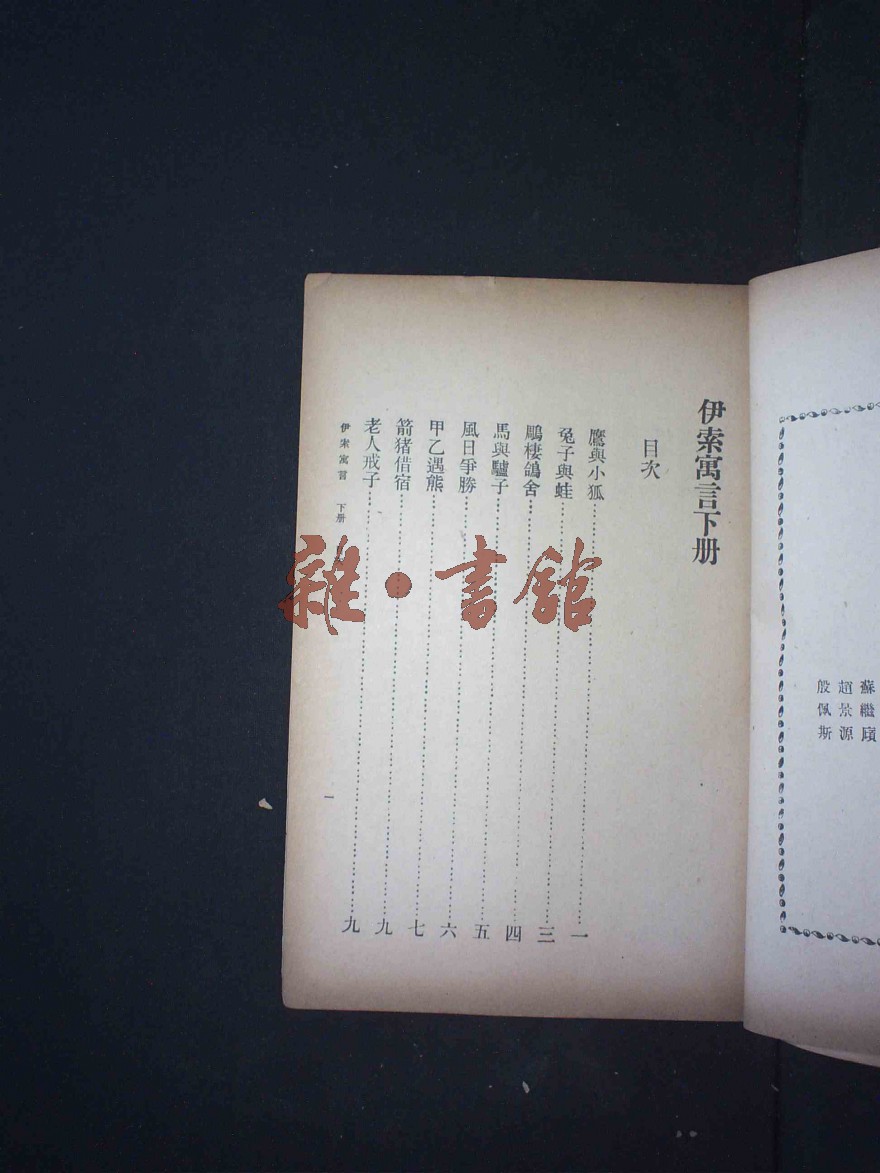 蘇繼廎
趙景源
殷佩斯
伊索寓言下册
目次
鷹與小狐……一
兔子與蛙……三
鵰棲鴿舍……四
馬與驢子……五
風日爭勝……六
甲乙遇熊……七
箭猪借宿……九
老人戒子……九
伊索寓言 下册
一
雜•書館